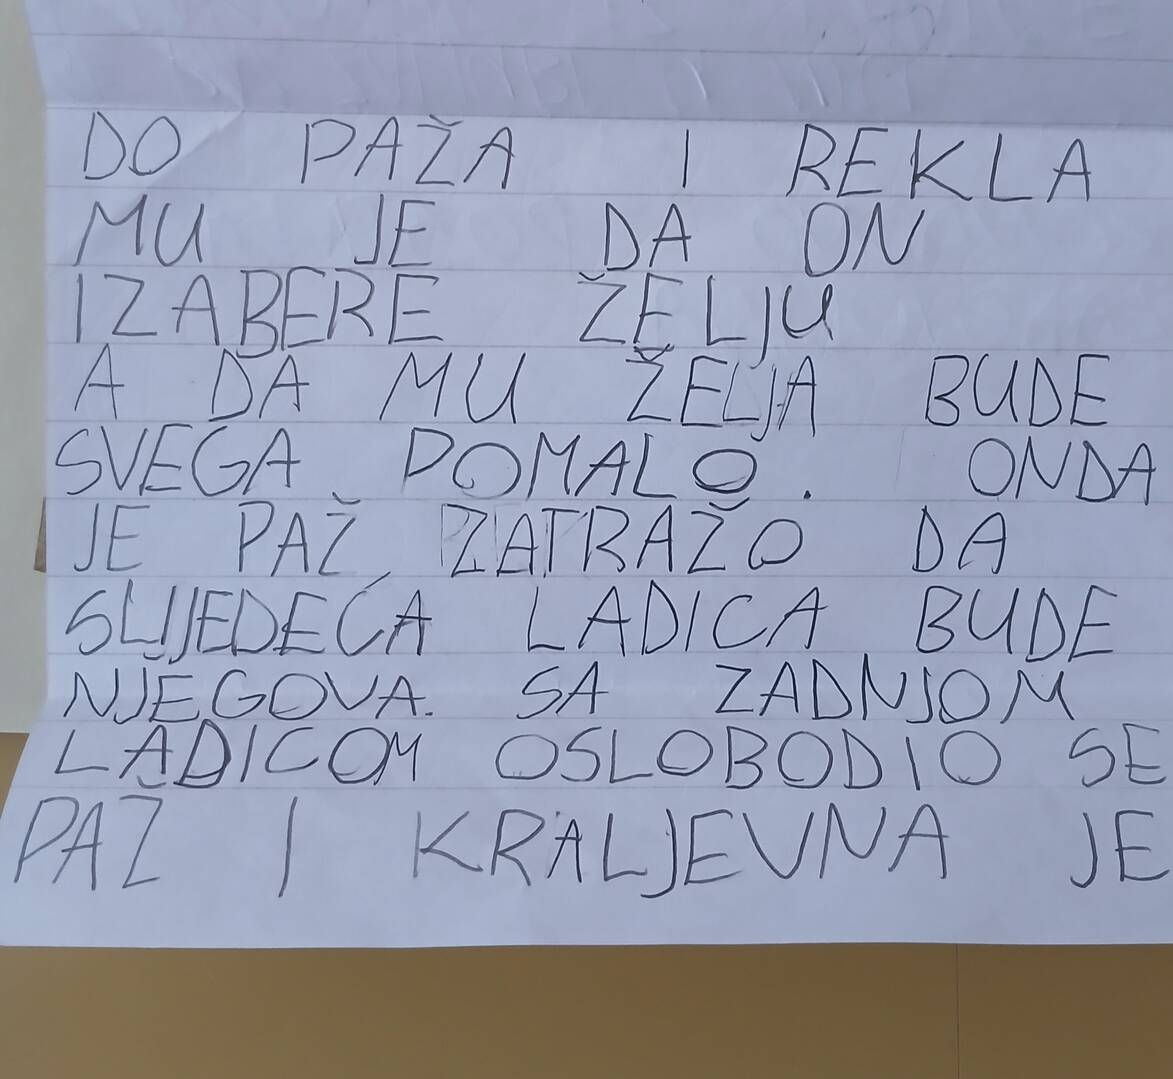 DO PAŽA I REKLA
MU JE DA ON
IZABERE ŽELJU
A DA MU ŽELJA BUDE
SVEGA POMALO. ONDA
JE PAŽ ZATRAŽO DA
SLIJEDEĆA LADICA BUDE
NJEGOVA. SA ZADNJOM
LADICOM OSLOBODIO SE
PAŽ I KRALJEVNA JE